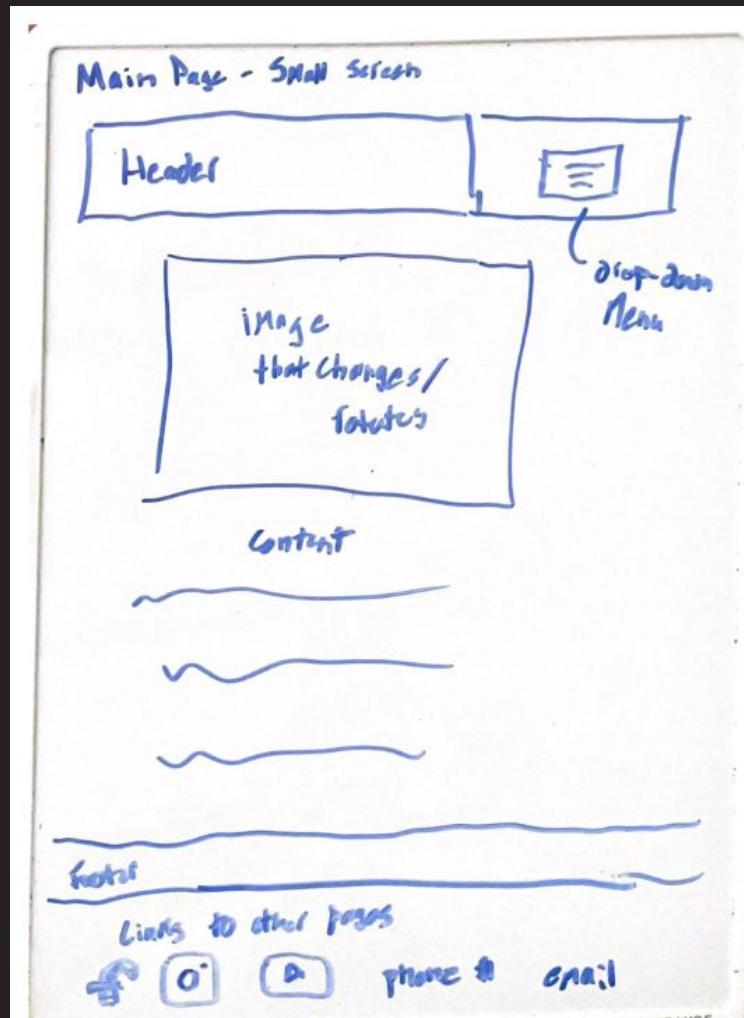 Main Page - Small Screen
Header
drop-down
Menu
image
that changes/
rotates
Content
Footer
Links to other pages
phone # email